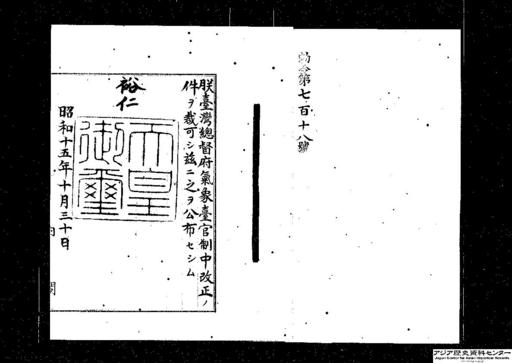 勅令第七百十八號
朕臺灣總督府氣象臺官制中改正ノ
件ヲ裁可シ玆ニ之ヲ公布セシム
裕仁
天皇
御璽
昭和十五年十月三十日
内閣
アジア歴史資料センター
Japan Center for Asian Historical Records